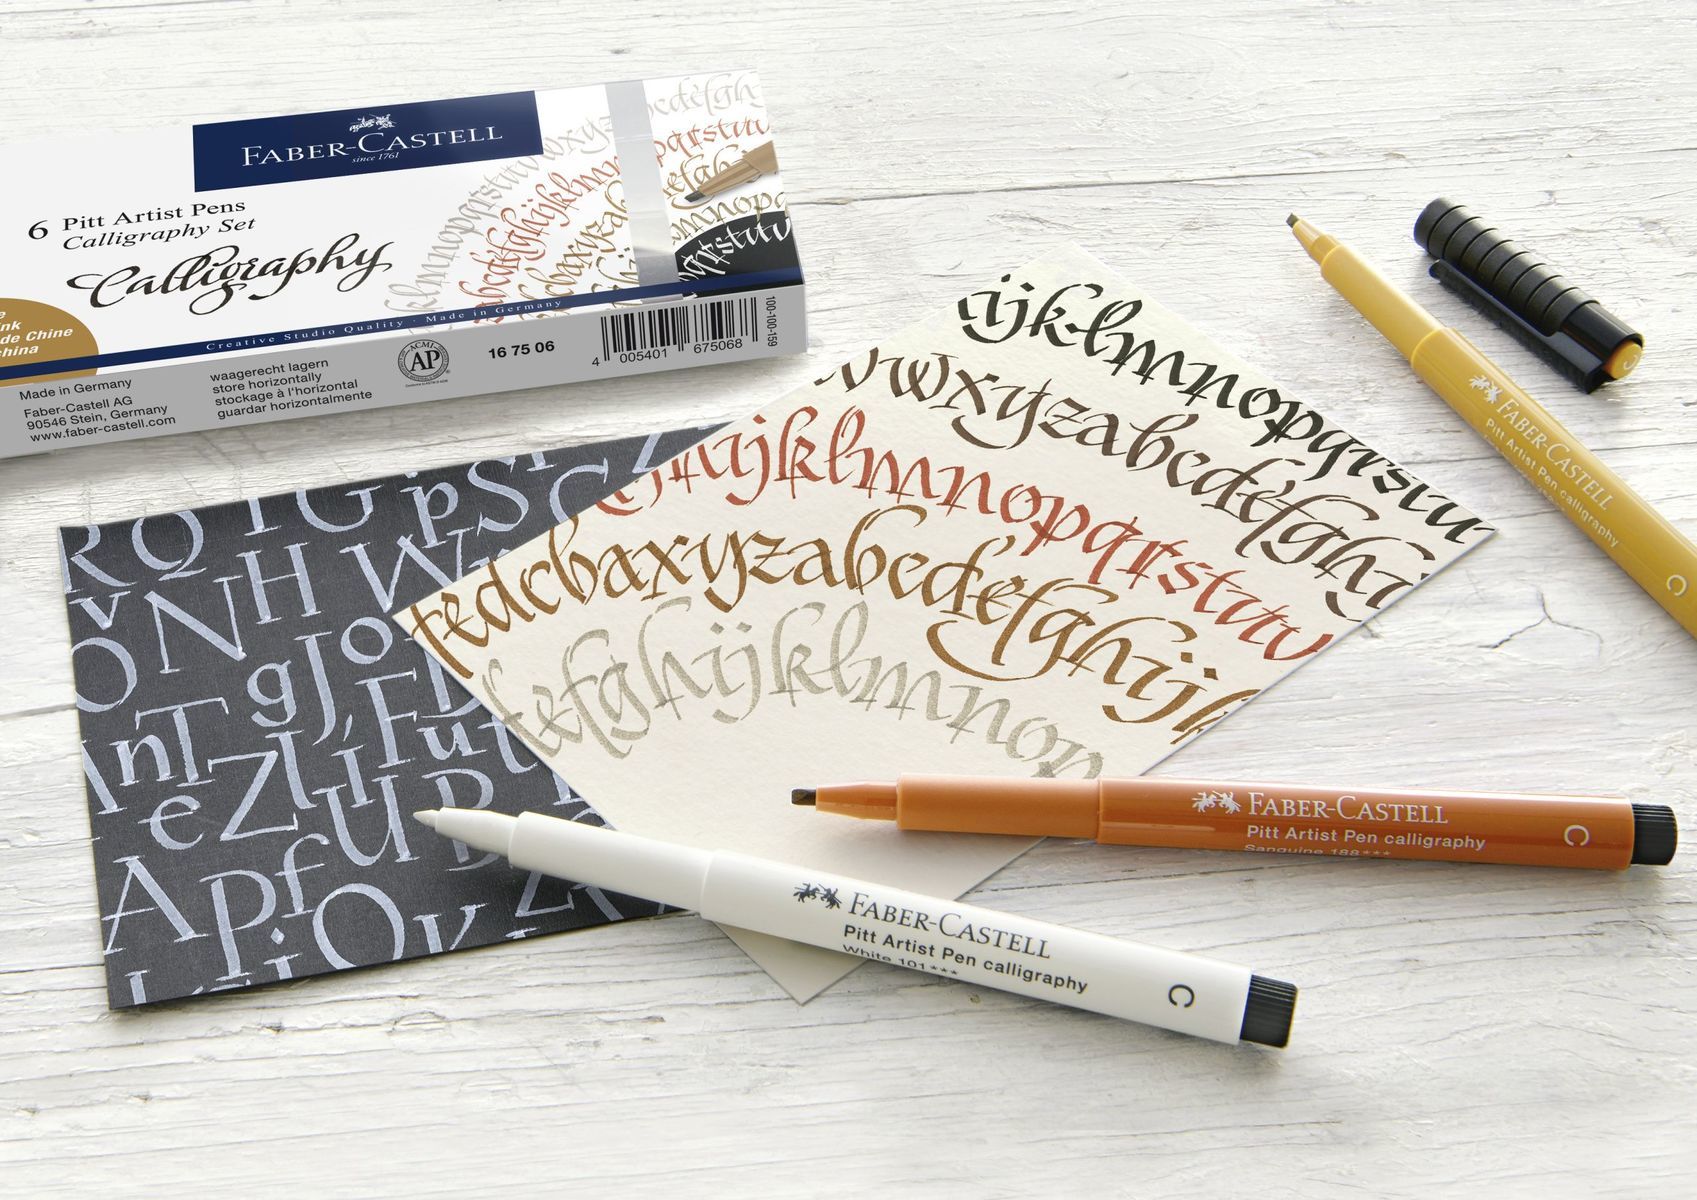 FABER-CASTELL
since 1761
6 Pitt Artist Pens
Calligraphy Set
Calligraphy
ink
de Chine
china
Creative Studio Quality · Made in Germany
Made in Germany
Faber-Castell AG
90546 Stein, Germany
www.faber-castell.com
waagerecht lagern
store horizontally
stockage à l'horizontal
guardar horizontalmente
ACMI
AP
16 75 06
4 005401 675068
100-100-159
ijklmnopqrstu
vwxyzabcdefghi
hijklmnopqrstuv
fedcbaxyzabcdefghijk
defghijklmnop
R Q I G p S C
N H W
O g J o
n T Z l í F u t
e U
A p f
Q v
FABER-CASTELL
Pitt Artist Pen calligraphy
C
FABER-CASTELL
Pitt Artist Pen calligraphy
Sanguine 188***
C
FABER-CASTELL
Pitt Artist Pen calligraphy
White 101***
C